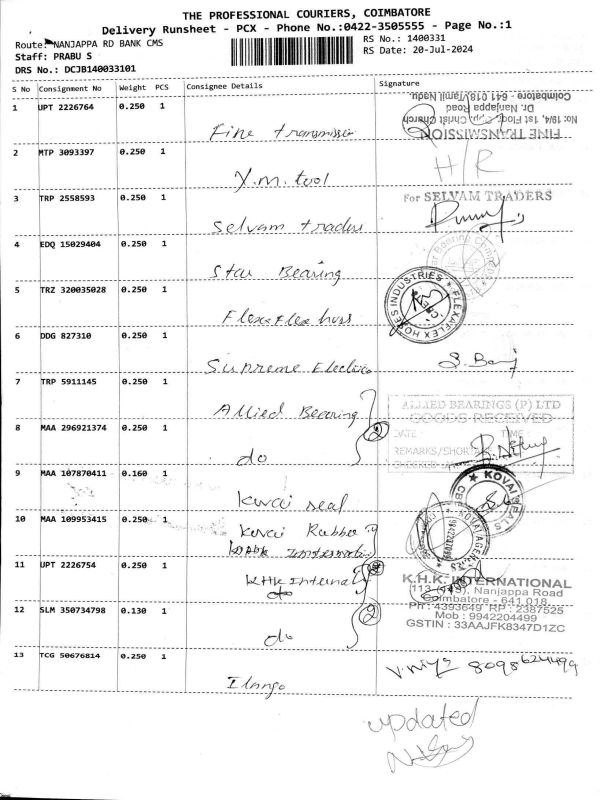 THE PROFESSIONAL COURIERS, COIMBATORE
Delivery Runsheet - PCX - Phone No.:0422-3505555 - Page No.:1
Route: NANJAPPA RD BANK CMS
RS No.: 1400331
Staff: PRABU S
RS Date: 20-Jul-2024
DRS No.: DCJB140033101
S No Consignment No Weight PCS Consignee Details Signature
1 UPT 2226764 0.250 1
Fine transmission
No: 19/4, 1st Floor, Christ Church
Dr. Nanjappa Road
Coimbatore - 641 018, Tamil Nadu.
FINE TRANSMISSION
2 MTP 3093397 0.250 1
Y.M. tool
H/R
3 TRP 2558593 0.250 1
Selvam traders
For SELVAM TRADERS
4 EDQ 15029404 0.250 1
Star Bearing
5 TRZ 320035028 0.250 1
Flexaflex hoses
FLEXAFLEX HOSES INDUSTRIES
6 DDG 827310 0.250 1
Supreme Electrico
7 TRP 5911145 0.250 1
Allied Bearing
ALLIED BEARINGS (P) LTD
GOODS RECEIVED
DATE : TIME
REMARKS/SHORT
8 MAA 296921374 0.250 1
do
2
9 MAA 107870411 0.160 1
Kovai seal
KOVAI SEALS
10 MAA 109953415 0.250 1
Kovai Rubber
KOVAI AGENCIES
11 UPT 2226754 0.250 1
KHK International
do
K.H.K. INTERNATIONAL
Nanjappa Road
Coimbatore - 641 018
Ph : 4393649 RP : 2387525
Mob : 9942204499
GSTIN : 33AAJFK8347D1ZC
12 SLM 350734798 0.130 1
do
2
13 TCG 50676814 0.250 1
Ilango
8098624499
updated